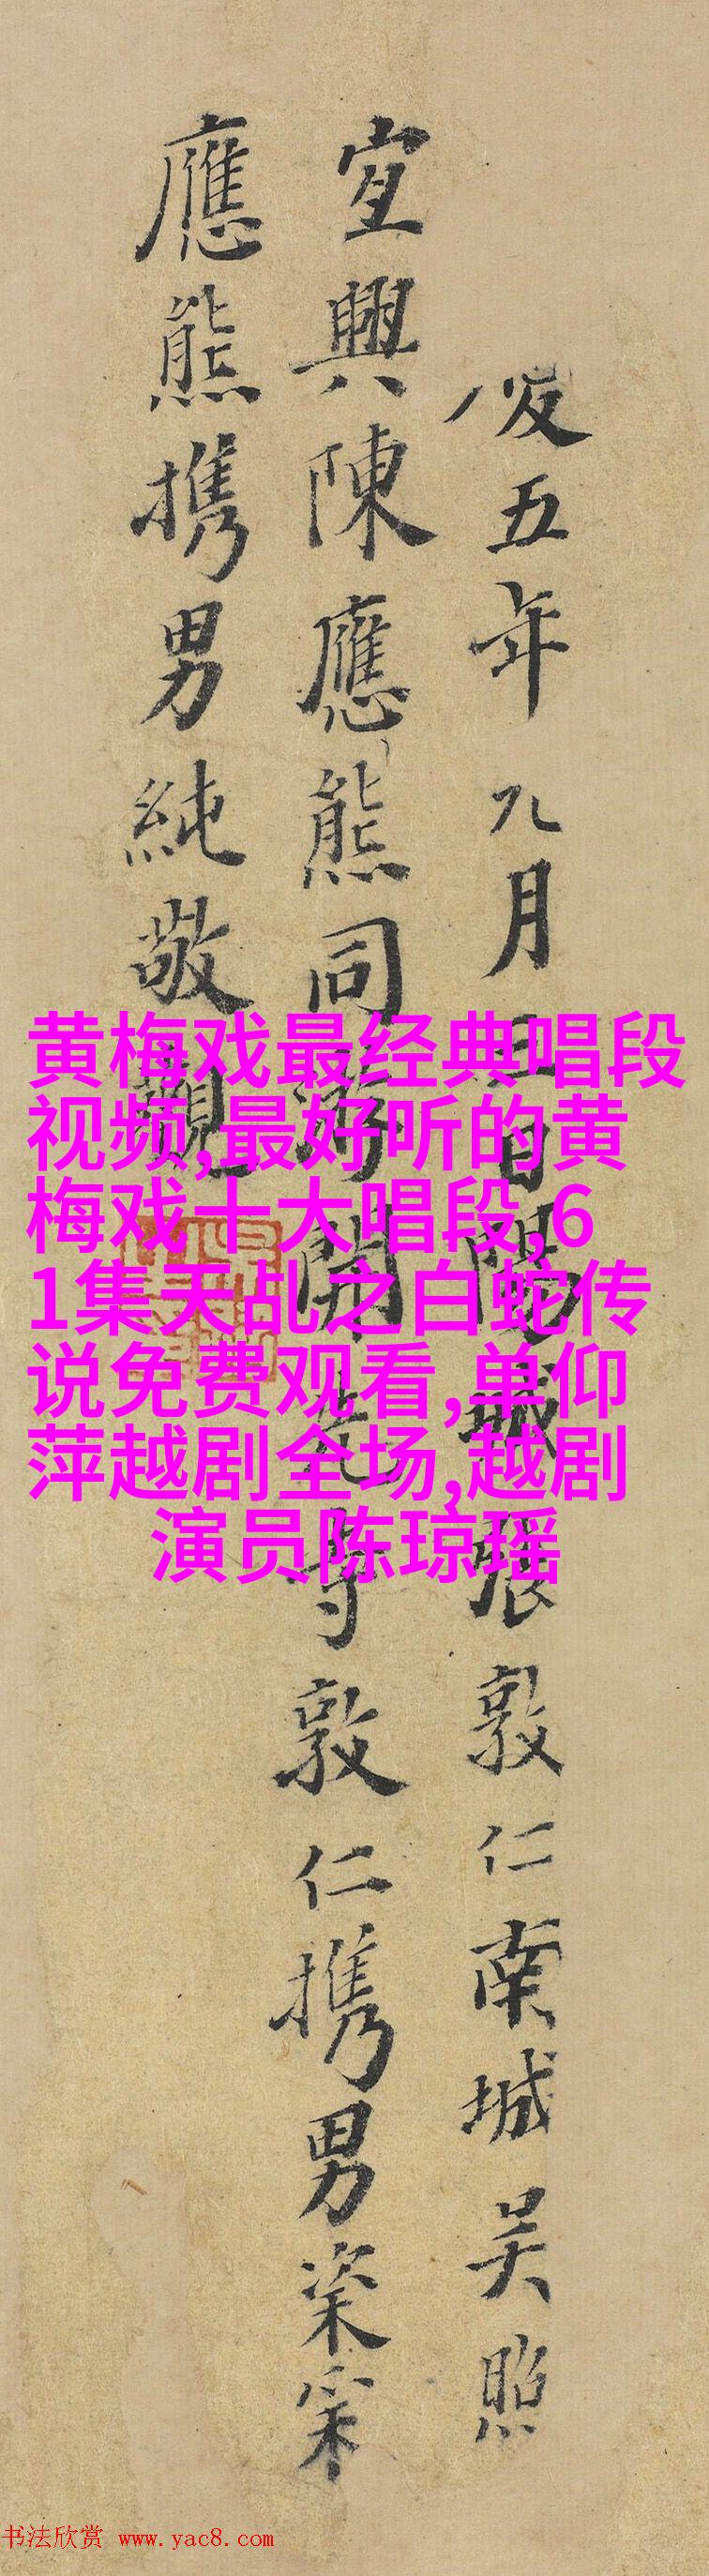 後五年九月三日陽城張敦仁南城吳照
宜興陳應熊同游開先寺敦仁携男
應熊携男純敬觀
黄梅戏最经典唱段
视频,最好听的黄
梅戏十大唱段,6
1集天乩之白蛇传
说免费观看,单仰
萍越剧全场,越剧
演员陈琼瑶
书法欣赏 www.yac8.com